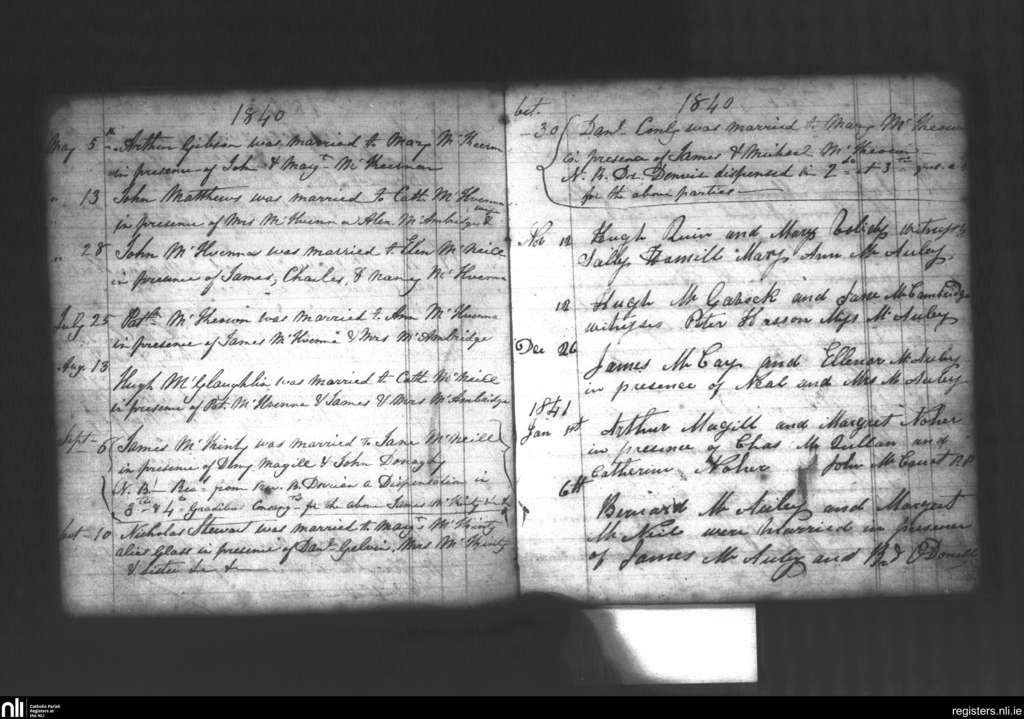 1840
May 5th Arthur Gibson was married to Mary McKeown
in presence of John & Marg.t McKeernan
" 13 John Matthews was married to Cath. McKvenna
in presence of Mrs McKvenna Alex. McAmbridge &
" 28 John McKvenna was married to Ellen McNeill
in presence of James, Charles, & Nancy McKvenna
July 25 Patk. McKeown was married to Ann McKvenna
in presence of James McKvenna & Mrs McAmbridge
Aug. 13
Hugh McGlaughlin was married to Cath. McNeill
in presence of Pat. McKvenna & James & Mrs McAmbridge
Sept - 6 James McKinty was married to Jane McNeill
in presence of Danl. Magill & John Donaghy
N. B. from Rev. B. Dorian a Dispensation in
3tio & 4to Gradibus for the above James McKinty
Oct - 10 Nicholas Stewart was married to Mary McKinty
alias Glass in presence of Danl. Galvin, Mrs McKinty
& Sister &c &c
1840
Oct.
30 Danl. Conly was married to Mary McKeown
in presence of James & Michael McKeown
N. B. Dr. Denvir dispensed in 2do et 3tio
for the above parties
Nov 12 Hugh Quin and Mary witness
Sally Hamill Mary Ann McAuley
12 Hugh McGavock and Jane McCambridge
witness Peter Hasson Miss McAuley
Dec 26
James McCay and Ellenor McAuley
in presence of Neal and Mrs McAuley
1841
Jan 1st Arthur Magill and Margret Noher
in presence of Chas McQuillan and
Catherine Noher John McCourt P.P
6th
Bernard McAuley and Margret
McNeil were Married in presence
of James McAuley and Bd. O'Donnell
nli
Catholic Parish
Registers at
the NLI
registers.nli.ie